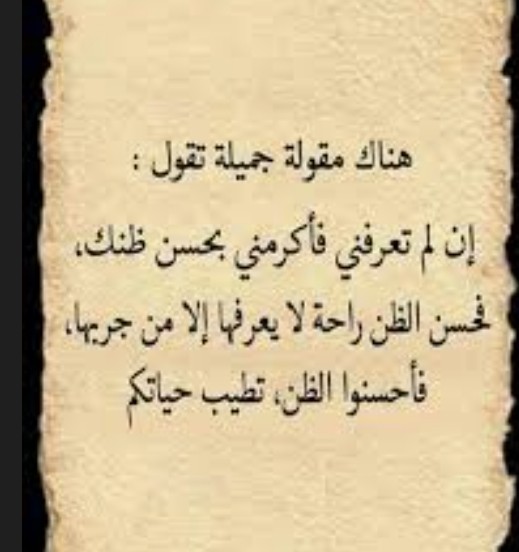 هناك مقولة جميلة تقول :
إن لم تعرفني فأكرمني بحسن ظنك،
فحسن الظن راحة لا يعرفها إلا من جربها،
فأحسنوا الظن، تطيب حياتكم